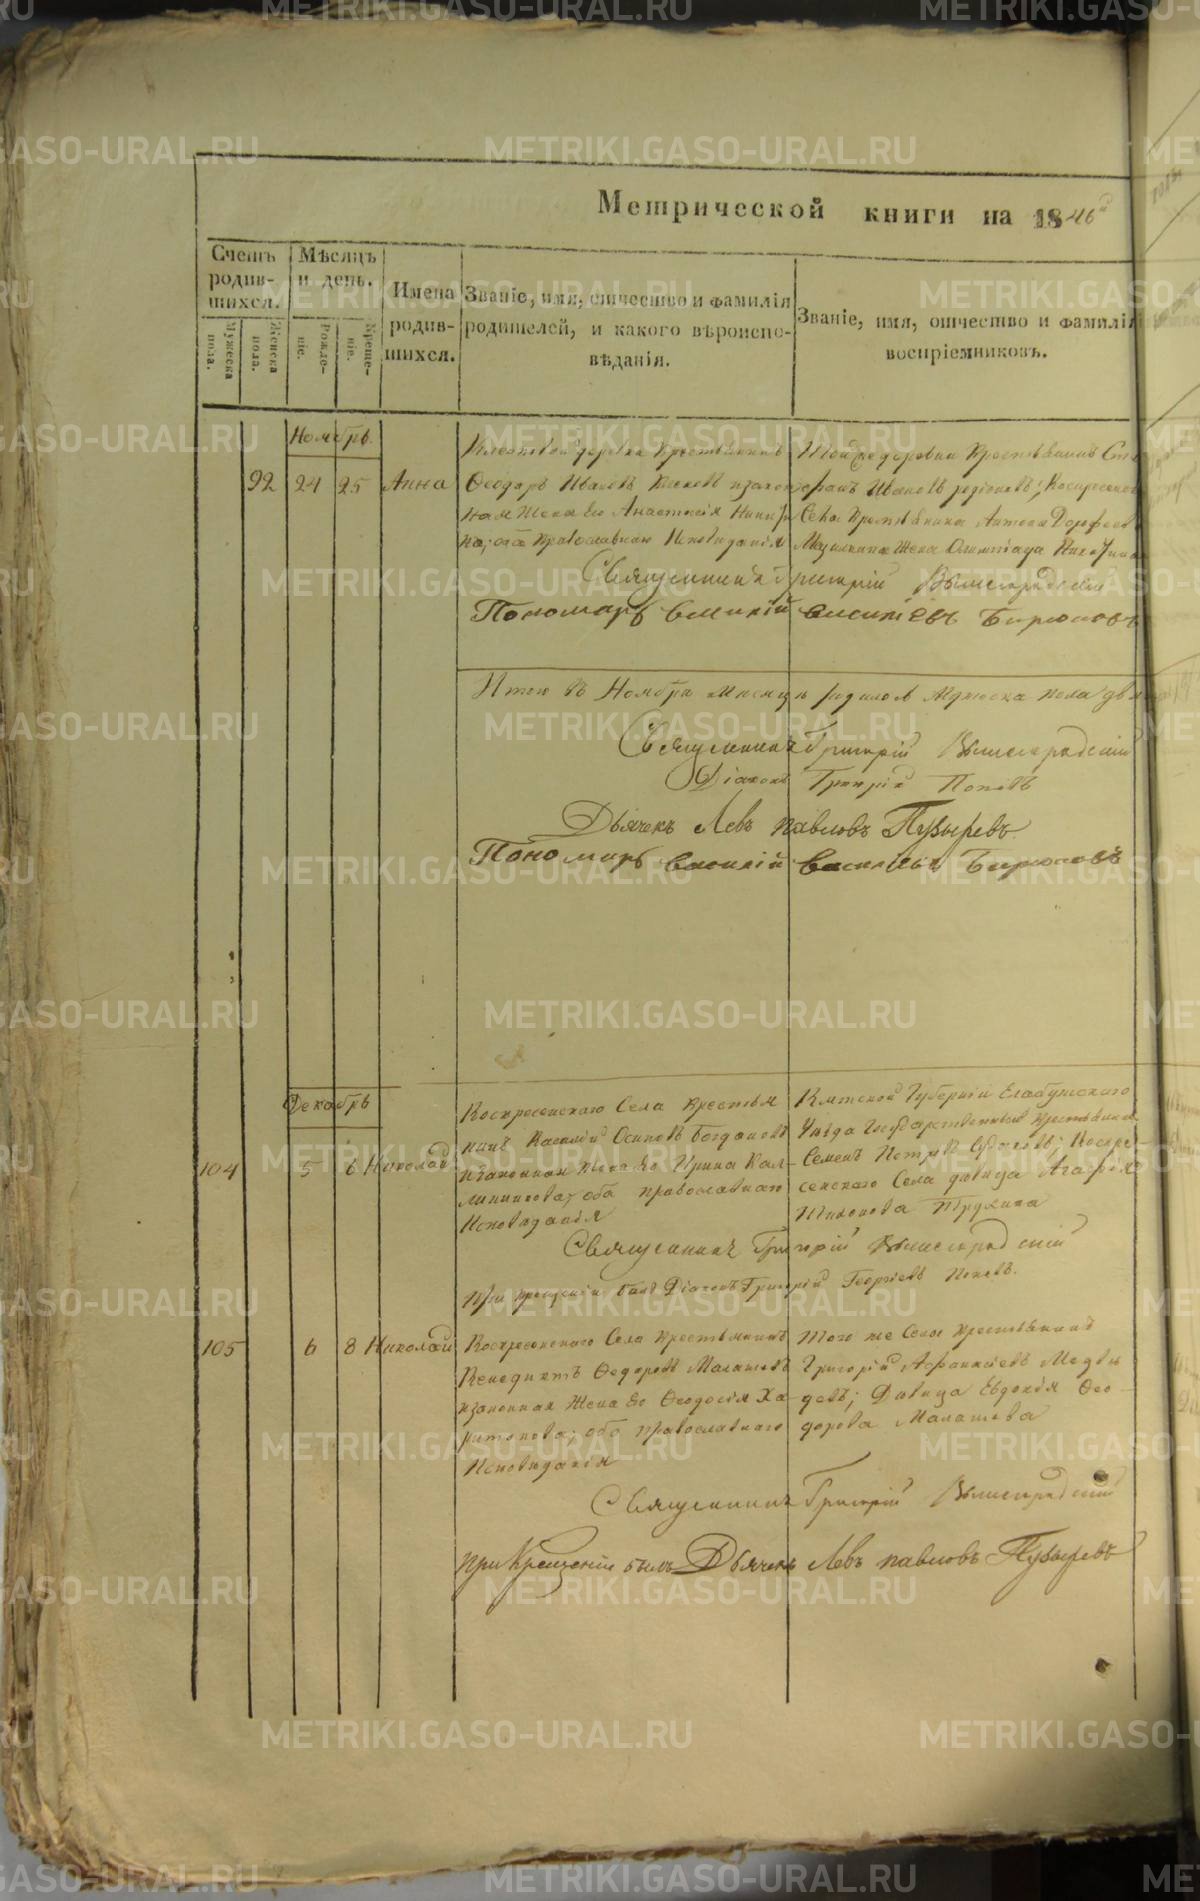 Метрической книги на 1846й
Счетъ родив-шихся.
Мужеска пола.
Женска пола.
Мѣсяцъ и день.
Рожде-ніе.
Креще-ніе.
Имена родив-шихся.
Званіе, имя, отчество и фамилія
родителей, и какого вѣроиспо-
вѣданія.
Званіе, имя, отчество и фамилія
воспріемниковъ.
Ноябрь.
92 24 25 Анна
деревни Крестьянинъ
Ѳеодоръ Ивановъ
ная Жена его Анастасія
на, оба Православнаго Исповѣданія
Той же деревни Крестьянинъ
Ивановъ Воскресенс
Села Крестьянина Антона
Жена Олимпіада
Священникъ Григорій Вышеградскій
Пономарь Василій Васильевъ Бирюковъ
Итого въ Ноябрѣ мѣсяцѣ родилось Мужеска пола
Священникъ Григорій Вышеградскій
Діаконъ Григорій Поповъ
Дьячекъ Левъ Павловъ Пузыревъ
Пономарь Василій Васильевъ Бирюковъ
Декабрь
104 5 6 Николай
Воскресенскаго Села Крестья
нинъ Василій Осиповъ Богдановъ
изаконная Жена его Ирина Кал-
линикова, оба православнаго
Исповѣданія
Вятской Губерніи Елабужскаго
Уѣзда Государственный Крестьянинъ
Семенъ Петровъ Воскре-
сенскаго Села дѣвица Агафія
Трухина
Священникъ Григорій Вышеградскій
При крещеніи былъ Діаконъ Григорій Георгіевъ Поповъ.
105 6 8 Николай
Воскресенскаго Села Крестьянинъ
Венедиктъ Ѳедоровъ Малашевъ
изаконная Жена его Ѳеодосія Ха-
ритонова, оба православнаго
Исповѣданія
Того же Села Крестьянинъ
Григорій Афанасіевъ Медвѣ
девъ; Дѣвица Евдокія Ѳео-
дорова Малашева
Священникъ Григорій Вышеградскій
при Крещеніи былъ Дьячекъ Левъ Павловъ Пузыревъ
METRIKI.GASO-URAL.RU